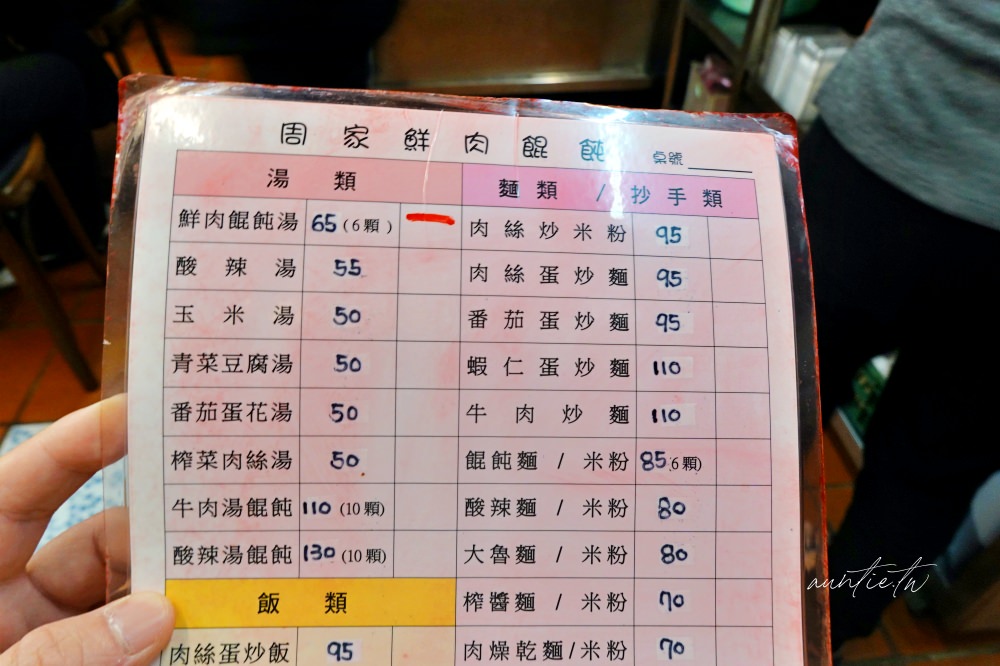 周家鮮肉餛飩 桌號
湯類
鮮肉餛飩湯 65 (6顆)
酸辣湯 55
玉米湯 50
青菜豆腐湯 50
番茄蛋花湯 50
榨菜肉絲湯 50
牛肉湯餛飩 110 (10顆)
酸辣湯餛飩 130 (10顆)
飯類
肉絲蛋炒飯 95
麵類 / 抄手類
肉絲炒米粉 95
肉絲蛋炒麵 95
番茄蛋炒麵 95
蝦仁蛋炒麵 110
牛肉炒麵 110
餛飩麵 / 米粉 85 6顆)
酸辣麵 / 米粉 80
大魯麵 / 米粉 80
榨醬麵 / 米粉 70
肉燥乾麵/米粉 70
auntie.tw